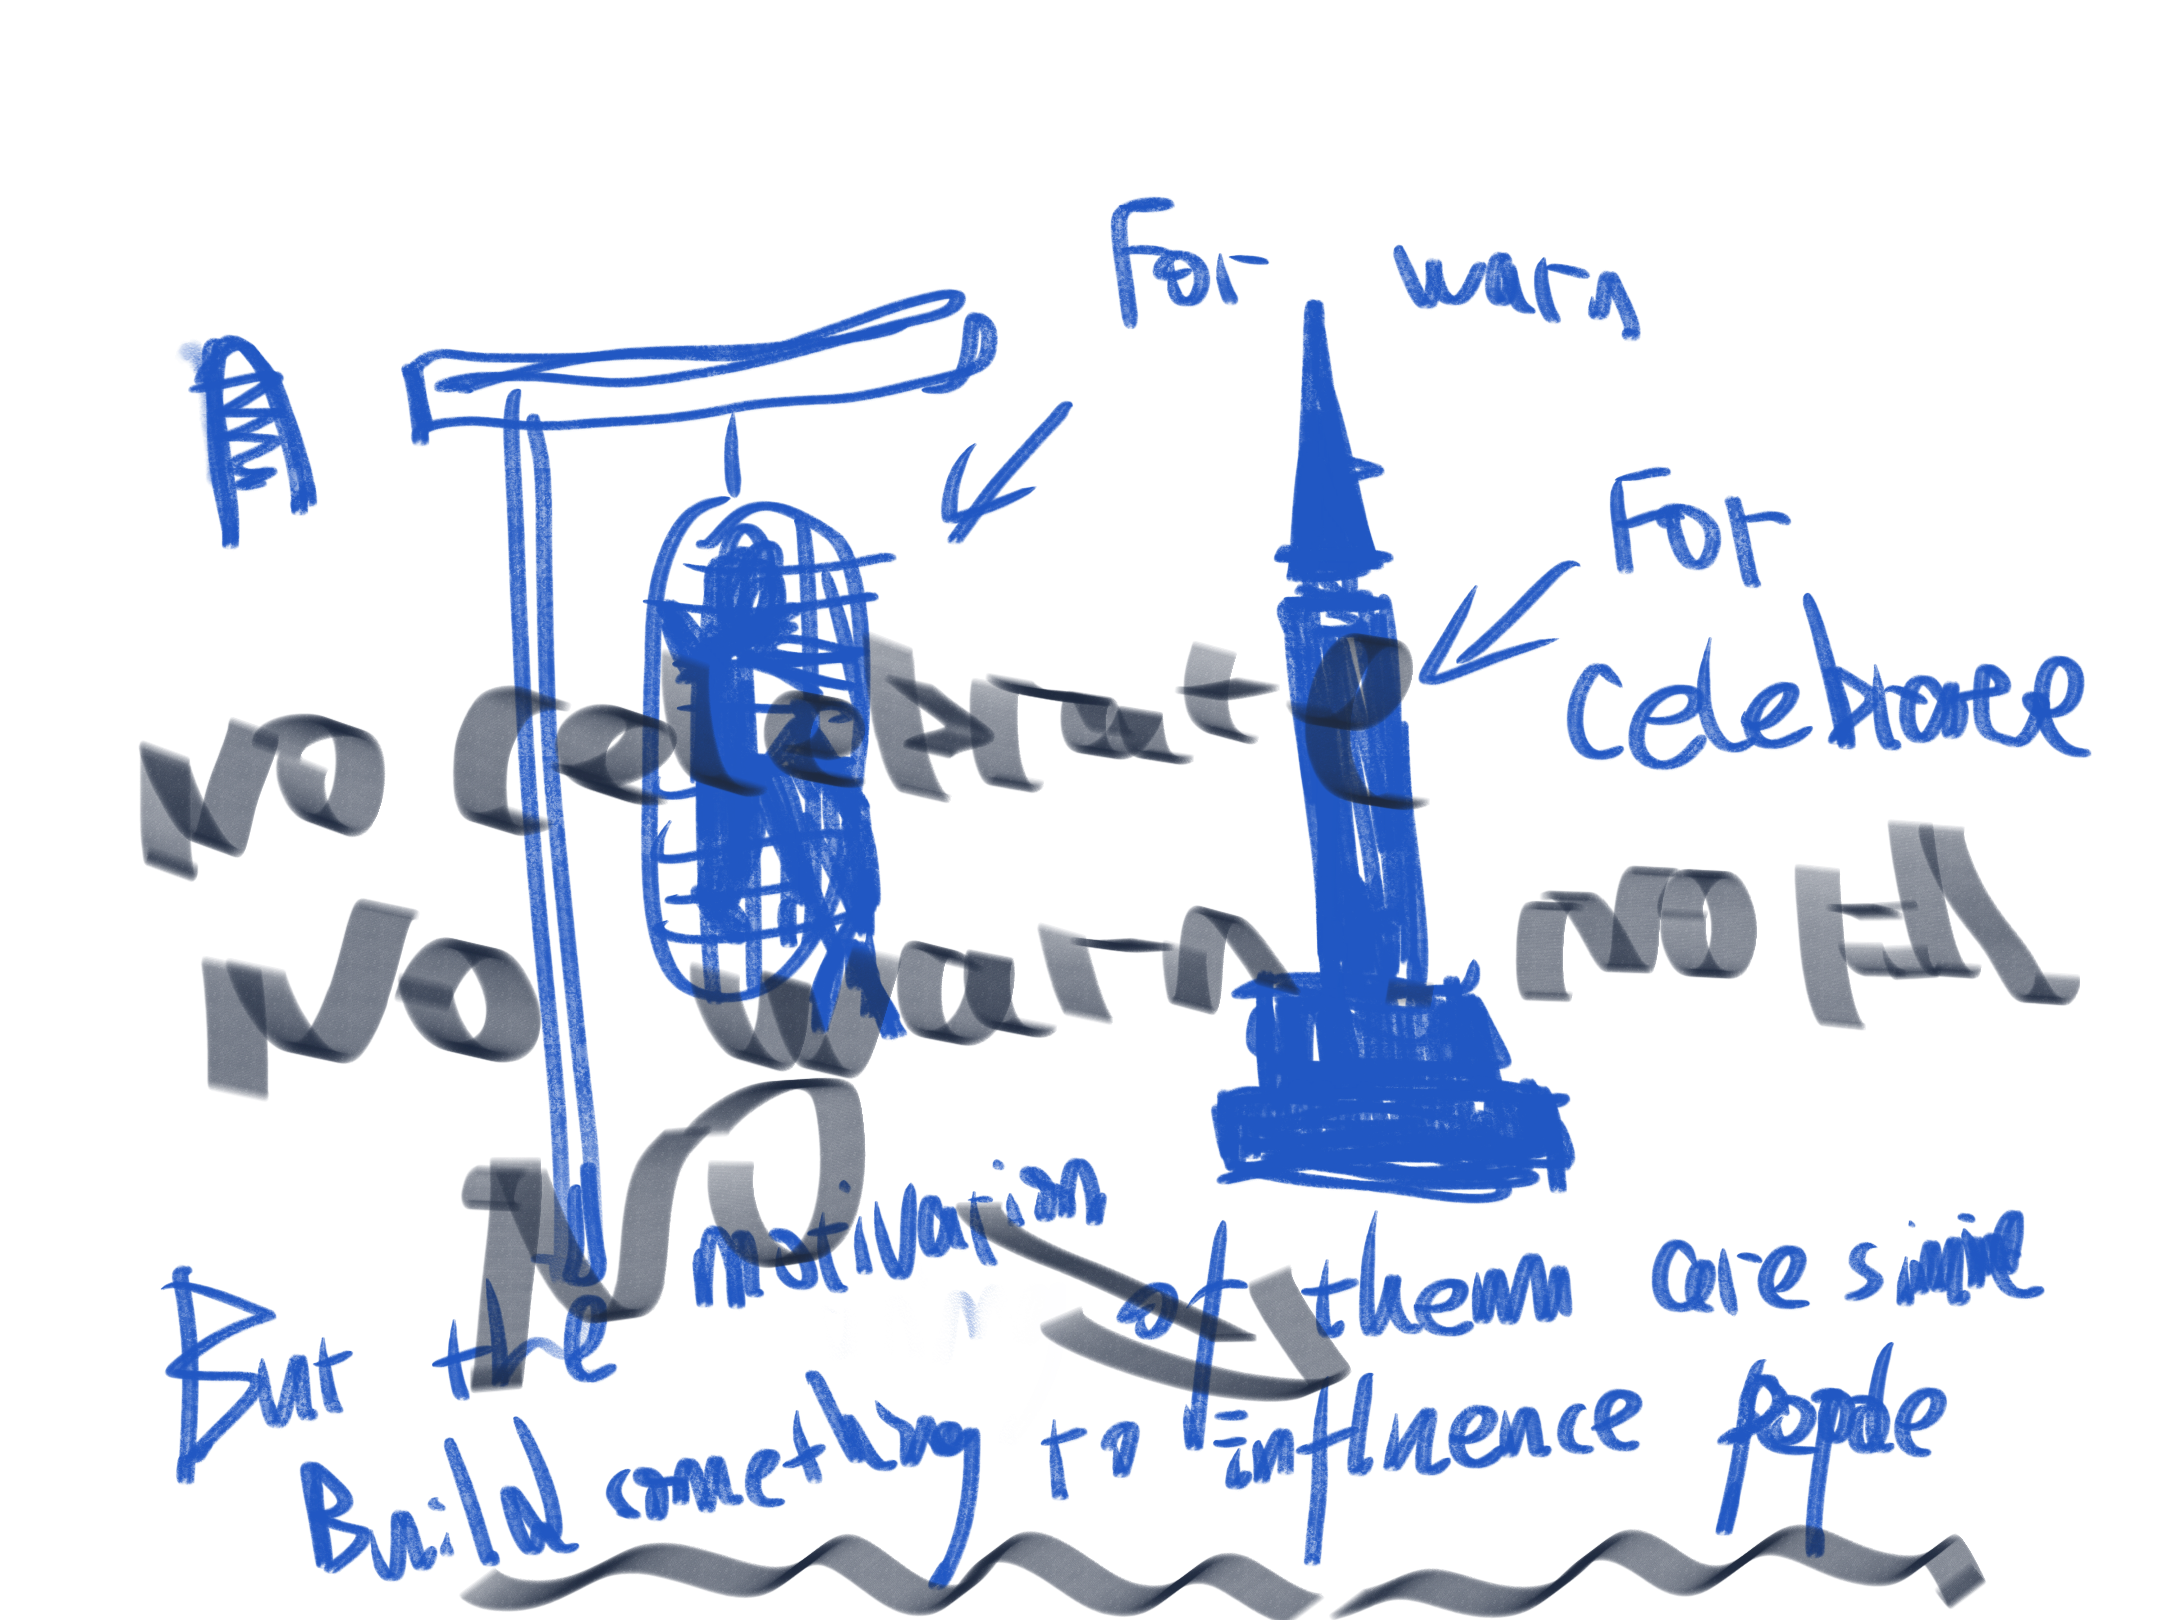 For warn
For
celebrate
No celebrate
No warn
No
But the motivation of them are
Build something to influence people